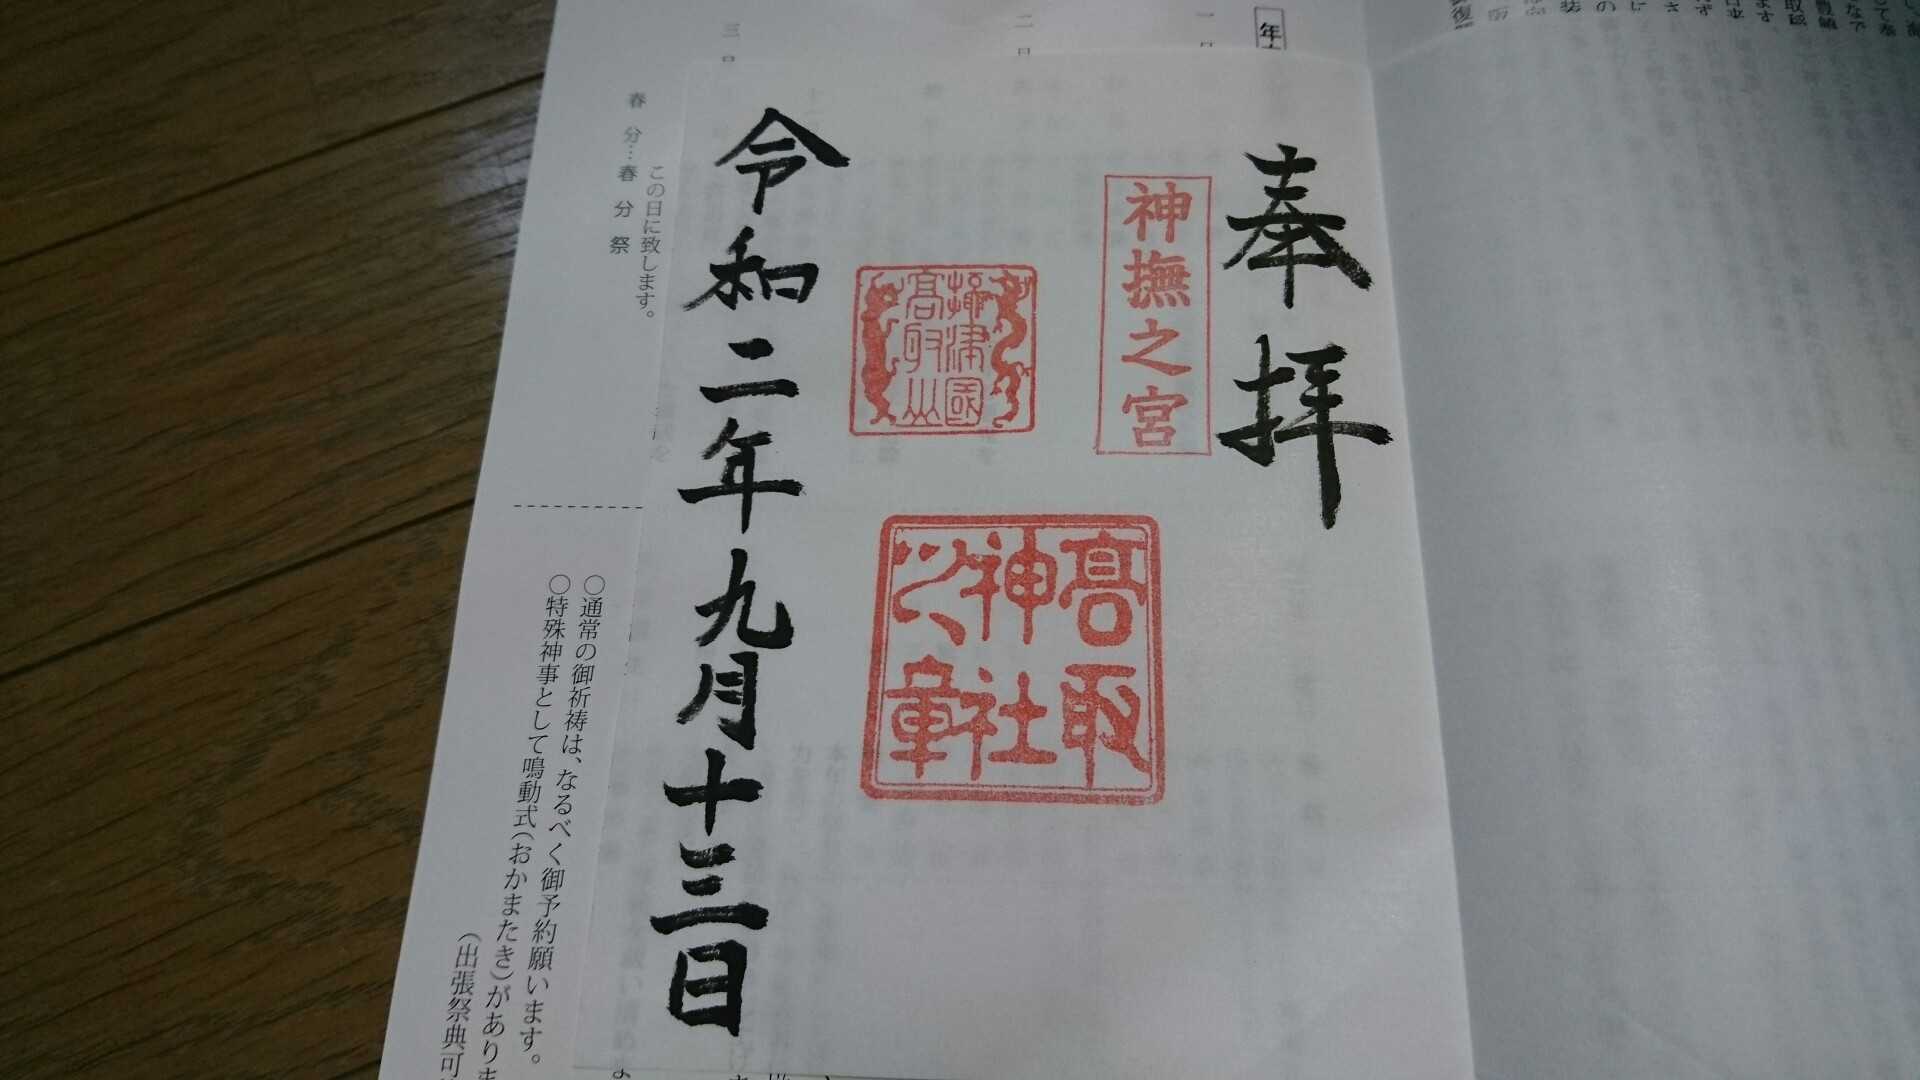 奉拝
神撫之宮
摂津國
高取山
高取
神社
之章
令和二年九月十三日
三日
二日
一日
春分…春分祭
この日に致します。
○通常の御祈祷は、なるべく御予約願います。
○特殊神事として鳴動式(おかまたき)がありま
(出張祭典可